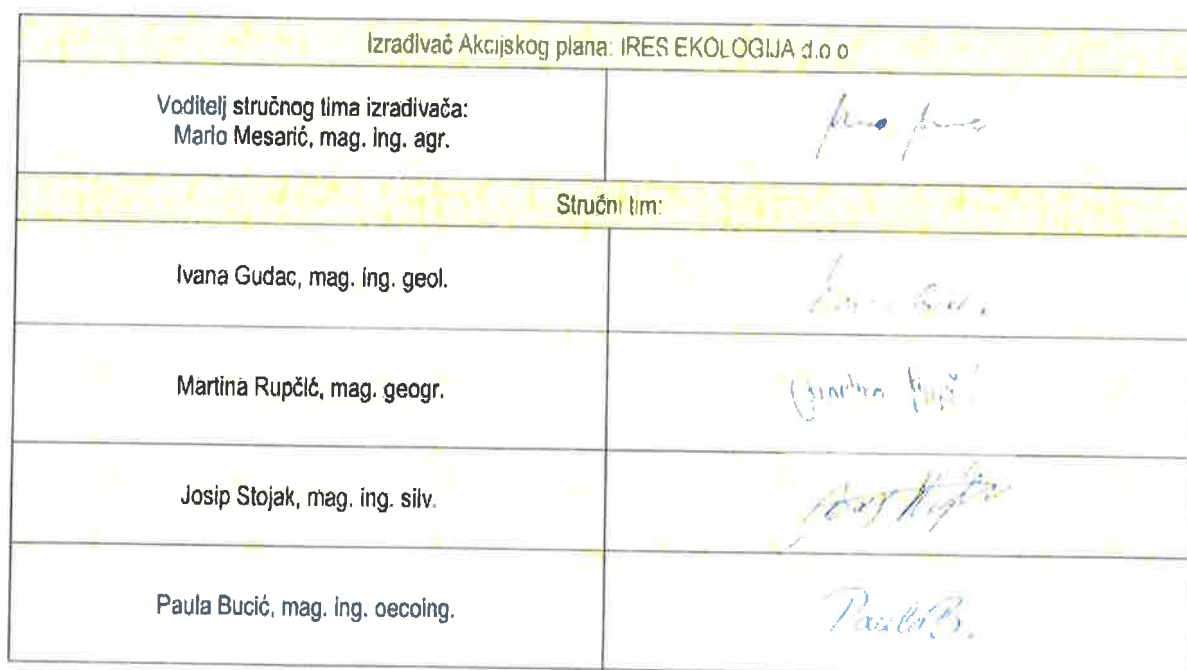 Izrađivač Akcijskog plana: IRES EKOLOGIJA d.o.o
Voditelj stručnog tima izrađivača:
Mario Mesarić, mag. ing. agr.
Stručni tim:
Ivana Gudac, mag. ing. geol.
Martina Rupčić, mag. geogr.
Martina Rupčić
Josip Stojak, mag. ing. silv.
Paula Bucić, mag. ing. oecoing.
Paula B.